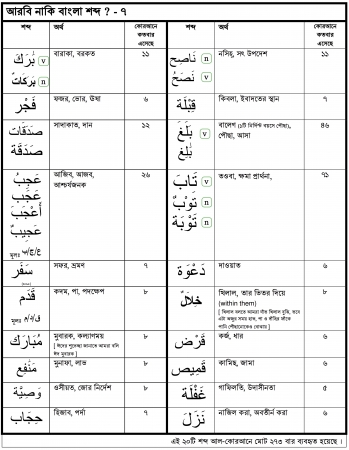 আরবি নাকি বাংলা শব্দ ? - ৭
শব্দ অর্থ কোরআনে কতবার এসেছে শব্দ অর্থ কোরআনে কতবার এসেছে
بٰرَكَ v بَرَكَاتٌ n বারাকা, বরকত ১১ نَاصِح n نَصَحَ v নসিহ্, সৎ উপদেশ ১১
فَجْر ফজর, ভোর, ঊষা ৬ قِبْلَة কিবলা, ইবাদতের স্থান ৭
صَدَقَات صَدَقَة সাদাকাত, দান ১২ بَلَغَ v بٰلِغ বালেগ (১টি নির্দিষ্ট বয়সে পৌঁছা), পৌঁছা, আসা ৪৬
عَجِبَ عَجَب أَعْجَبَ عَجِيبٌ মূলঃ ع/ج/ب আজিব, আজব, আশ্চর্যজনক ২৬ تَابَ v تَوْبٌ n تَوْبَة n তওবা, ক্ষমা প্রার্থনা, ৭১
سَفَر সফর, ভ্রমণ ৭ دَعْوَة দাওয়াত ৬
قَدَم মূলঃ ق/د/م কদম, পা, পদক্ষেপ ৮ خِلَالٌ খিলাল, তার ভিতর দিয়ে (within them) ৮
مُبَارَك মুবারক, কল্যাণময় ৮ قَرْض কর্জ, ধার ৬
مَنٰفِع মুনাফা, লাভ ৮ قَمِيص কামিছ, জামা ৬
وَصِيَّة ওসীয়ত, জোর নির্দেশ ৮ غَفْلَة গাফিলতি, উদাসীনতা ৫
حِجَاب হিজাব, পর্দা ৭ نَزَلَ নাজিল করা, অবতীর্ন করা ৬
এই ২০টি শব্দ আল-কোরআনে মোট ২৭৩ বার ব্যবহৃত হয়েছে।